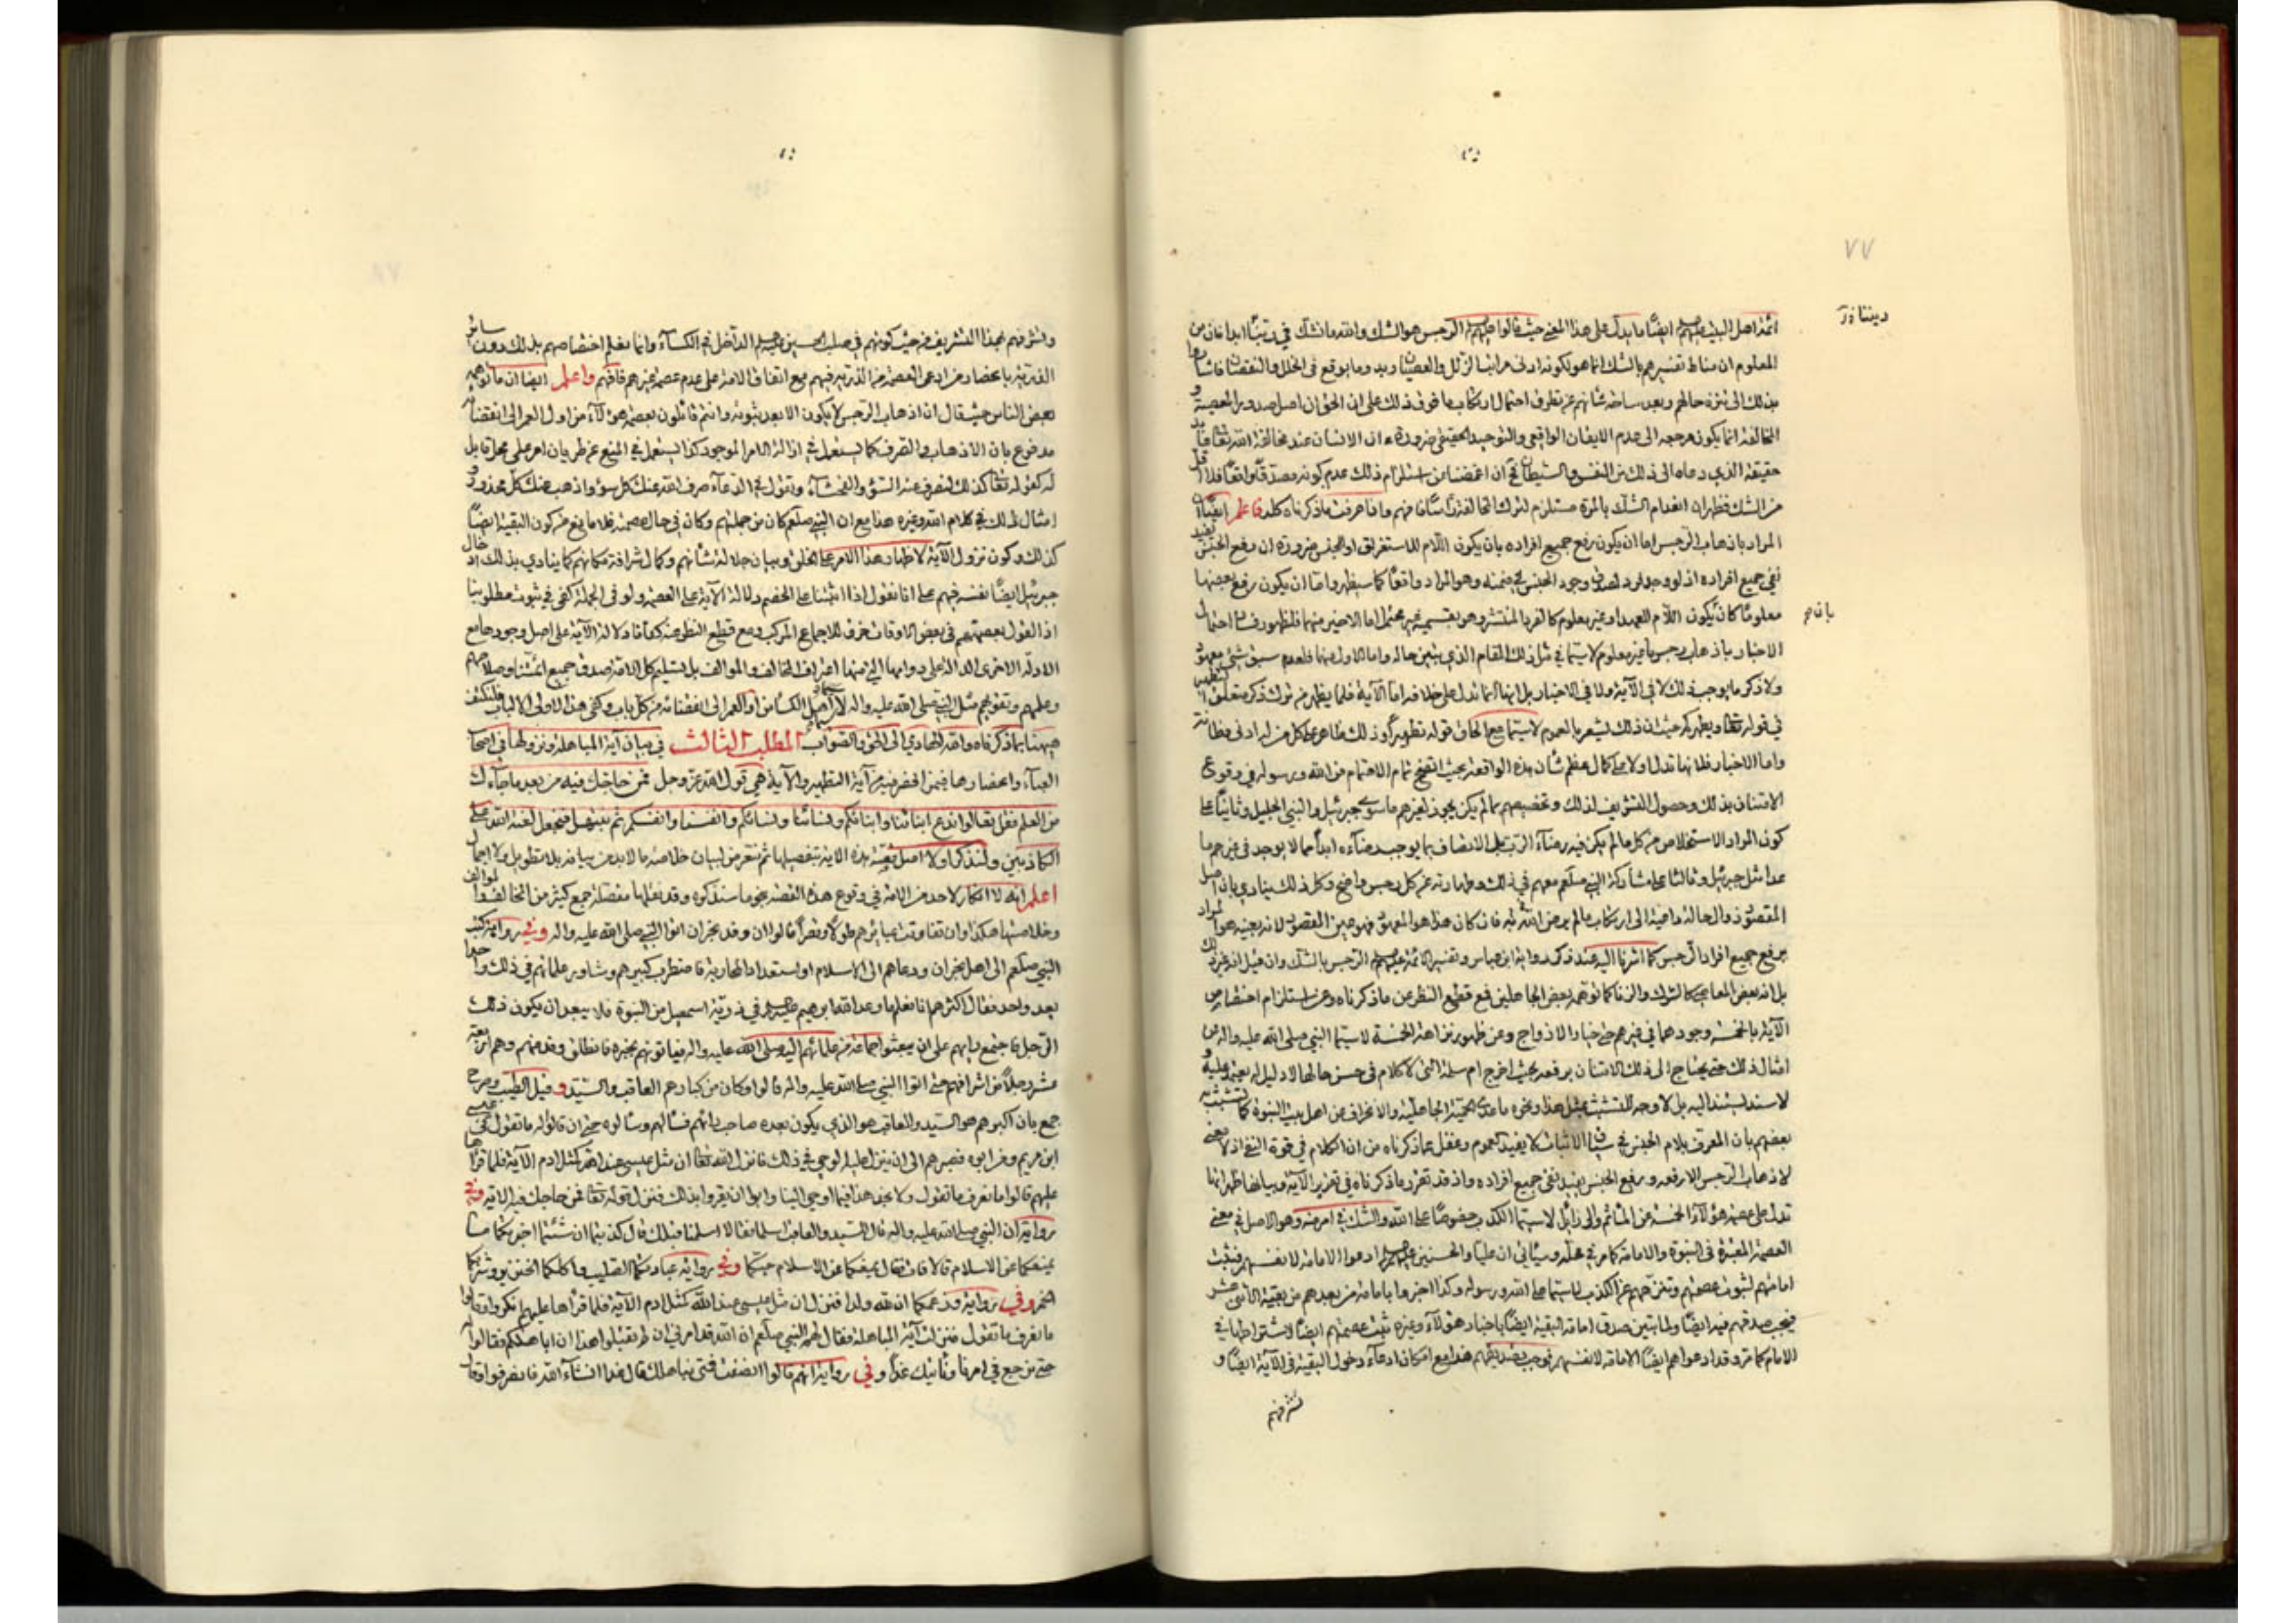 ٧٧
ائمة اهل البيت عليهم السلام ايضًا ما يدل على هذا المعنى حيث قالوا عليهم السلام الرجس هو الشك والله ما نشك في ديننا ابدا فان من
المعلوم ان مناط تفسيرهم بالشك انما هو لكونه ادنى مراتب الزلل والعصيان وبدء ما يوقع في الخلل والنقصان فاشاروا
بذلك الى تنزه حالهم وبعد ساحة عن تطرف احتمال ارتكاب ما فوق ذلك على ان الحق ان اصل صدور المعصية و
المخالفة انما يكون مرجعه الى عدم الايقان الواقعي والتوحيد الحقيقي ضرورة ان الانسان عند مخالفة الله تعالى
حقيقة الذي دعاه الى ذلك من النفس والشيطان ان اغمضنا عن استلزام ذلك عدم كونه مصدقًا واقعًا فلا اقل
من الشك فظهر ان انعدام الشك بالمرة مستلزم لترك المخالفة فافهم واذا عرفت ما ذكرناه كله فاعلم ايضًا ان
المراد باذهاب الرجس اما ان يكون رفع جميع افراده بان يكون اللام للاستغراق او الجنس ضرورة ان رفع الجنس يفيد
نفي جميع افراده اذ لو وجد فرد لصدق وجود الجنس في ضمنه وهو المراد واقعًا كما سيظهر واما ان يكون رفع بعضها
بان
معلومًا كان يكون اللام للعهد او غير معلوم كالفرد المنتشر وهو بقسميه غير محتمل اما الاخير منهما فلظهور رفع احتمال
الاخبار باذهاب رجس ما غير معلوم لا سيما في مثل ذلك المقام الذي يتبين حاله واما الاول منهما فلعدم سبق شئ معهود
ولا ذكر ما يوجب ذلك لا في الآية ولا في الاخبار بل انها انما تدل على خلافه اما الآية فلما يظهر من ترك ذكر متعلق التطهير
في قوله تعالى ويطهركم حيث ان ذلك يشعر بالعموم لا سيما مع الحاق قوله تطهيرًا وذلك ظاهر على كل من له ادنى فطانة
واما الاخبار فلانها تدل اولا على كمال عظم شأن هذه الواقعة بحيث اتضح تمام الاهتمام من الله ورسوله في وقوع
الامتنان بذلك وحصول التشريف لذلك وتخصيصهم بما لم يكن يجوز لغيرهم ما سوى جبرئيل والنبي الجليل وثانيًا على
كون المراد الاستخلاص من كل ما لم يكن فيه رضاء الرب تعالى الاتصاف بما يوجب رضاءه ابدًا مما لا يوجد في غيرهم ما
عدا مثل جبرئيل وثالثا على مشاركة النبي صلعم معهم في ذلك وطهارته عن كل رجس واضح وكل ذلك ينادي بان اصل
المقصود والحالة داعية الى ارتكاب ما لم يرض الله به فان كان هذا هو المعهود فهو عين المقصود لانه بعينه هو المراد
برفع جميع افراد الرجس كما اشرنا اليه عند ذكر رواية ابن عباس وتفسير الائمة عليهم السلام الرجس بالشك وان قيل
بل انه بعض المعاصي كالشرك والزنا كما توهمه بعض الجاهلين فمع قطع النظر عن ما ذكرناه وعن استلزام اختصاص
الآية بالخمسة وجودهما في غيرهم حتى خيار الازواج وعن ظهور نزاهة الخمسة لا سيما النبي صلى الله عليه واله من
امثال ذلك حتى يحتاج الى ذلك الامتنان برفعه بحيث اخرج ام سلمة التي لا كلام في حسن حالها لا دليل له
لا سند يستند اليه بل لا وجه للتشبث بمثل هذا ونحوه ما عدا الحمية الجاهلية والانحراف عن اهل بيت النبوة كما تشبث به
بعضهم بان المعرف بلام الجنس في سياق الاثبات لا يفيد العموم وغفل عما ذكرناه من ان الكلام في قوة النفي اذ لا معنى
لاذهاب الرجس الا رفعه ورفع الجنس يفيد نفي جميع افراده واذ قد تقرر ما ذكرناه في تقرير الآية وبيانها ظهر انها
تدل على عصمة هؤلاء الخمسة عن المآثم والرذائل لا سيما الكذب خصوصًا على الله والشك في امر منه وهو الاصل في معنى
العصمة المعتبرة في النبوة والامامة كما مر في محله وسيأتي ان عليًا والحسنين عليهم السلام ادعوا الامامة لانفسهم فيثبت
امامتهم لثبوت عصمتهم وتنزههم عن الكذب لا سيما على الله ورسوله وكذا اخبروا بامامة من بعدهم من بقية الاثني عشر
فيجب صدقهم فيه ايضًا ولما تبين صدق امامة البقية ايضًا باخبار هؤلاء وغيره ثبت عصمتهم ايضًا لاشتراطها في
الامام كما مر وقد ادعوا هم ايضًا الامامة لانفسهم فوجب تصديقهم هذا مع امكان ادعاء دخول البقية في الآية ايضًا و
تشرفهم
وتشرفهم بهذا التشريف من حيث كونهم في صلب الحسين عليه السلام الداخل في الكساء وانما يعلم اختصاصهم بذلك دون سائر
الذرية بانحصار من ادعى العصمة من الذرية فيهم مع اتفاق الامة على عدم عصمة غيرهم فافهم واعلم ايضا ان ما توهمه
بعض الناس حيث قال ان اذهاب الرجس لا يكون الا بعد ثبوته وانتم قائلون بعصمة هؤلاء من اول العمر الى انقضائه
مدفوع بان الاذهاب والصرف كما يستعمل في ازالة الامر الموجود كذا يستعمل في المنع عن طريان امر على محل قابل
له كقوله تعالى كذلك لنصرف عنه السوء والفحشاء وتقول في الدعاء صرف الله عنك كل سوء واذهب عنك كل محذور و
امثال ذلك في كلام الله وغيره هذا مع ان النبي صلعم كان من جملتهم وكان في حال عصمته فلا مانع من كون البقية ايضًا
كذلك وكون نزول الآية لاظهار هذا الامر على الخلق وبيان جلالة شأنهم وكمال شرافة مكانهم كما ينادي بذلك ادخال
جبرئيل ايضًا نفسه فيهم على انا نقول اذا اثبتنا على الخصم دلالة الآية على العصمة ولو في الجملة كفى في ثبوت مطلوبنا
اذ القول بعصمتهم في بعض الاوقات خرق للاجماع المركب ومع قطع النظر عنه كفانا دلالة الآية على اصل وجودها مع
الادلة الاخرى الدالة على دوامها التي منها اعتراف المخالف والموالف بل تسليم كل الامة صدق جميع ائمتنا وصلاحهم
وعلمهم وتقويهم مثل النبي صلى الله عليه واله لا من اول العمر الى انقضائه من كل باب وكفى هذا لاولي الالباب فلنكتف
هيهنا بما ذكرناه والله الهادي الى الحق والصواب المطلب الثالث في بيان آية المباهلة ونزولها في اصحاب
العباء وانحصارها فيمن انحصر فيهم آية التطهير والآية هي قول الله عز وجل فمن حاجك فيه من بعد ما جاءك
من العلم فقل تعالوا ندع ابنائنا وابنائكم ونسائنا ونسائكم وانفسنا وانفسكم ثم نبتهل فنجعل لعنة الله على
الكاذبين ولنذكر اولا اصل قصة هذه الآية بتفصيلها ثم نتعرض لبيان خلاصة ما لا بد من بيانه بلا تطويل ولا اجمال
اعلم انه لا انكار لاحد من الامة في وقوع هذه القصة بنحو ما سنذكره وقد نقلها مفصلة جمع كثير من المخالف والموالف
وخلاصتها هكذا وان تفاوتت عبائرهم طولًا وقصرًا قالوا ان وفد نجران اتوا النبي صلى الله عليه واله وفي رواية كتب
النبي صلعم الى اهل نجران ودعاهم الى الاسلام او استعداد المحاربة فاضطرب كبيرهم وشاور علمائهم في ذلك واحدا
بعد واحد فقال اكثرهم انا نعلم ما وعد الله ابرهيم عليه السلام في ذرية اسمعيل من النبوة فلا يبعد ان يكون ذلك
الرجل فاجتمع رايهم على ان يبعثوا جماعة من علمائهم اليه صلى الله عليه واله فيأتونهم بخبره فانطلق وفد منهم وهم اربعة
عشر رجلًا من اشرافهم حتى اتوا النبي صلى الله عليه واله قالوا وكان من كبارهم العاقب والسيد وقيل الطيب وصرح
جمع بان اكبرهم هو السيد والعاقب هو الذي يكون بعده صاحب رايهم فسألهم وسألوه حتى ان قالوا له ما تقول في عيسى
ابن مريم ومن ابوه فصبرهم الى ان ينزل عليه الوحي في ذلك فانزل الله تعالى ان مثل عيسى عند الله كمثل ادم الآية فلما قراها
عليهم قالوا ما نعرف ما تقول ولا نجد هذا فيما اوحي الينا وابوا ان يقروا بذلك فنزل قوله تعالى فمن حاجك فيه الآية وفي
رواية ان النبي صلى الله عليه واله قال للسيد والعاقب اسلما فقالا اسلمنا قبلك قال كذبتما ان شئتما اخبرتكما ما
يمنعكما عن الاسلام قالا هات فقال يمنعكما عن الاسلام حبكما وفي رواية عبادتكما الصليب واكلكما الخنزير وشربكما
الخمر وفي رواية وزعمكما ان لله ولدا فنزل ان مثل عيسى عند الله كمثل ادم الآية فلما قرأها عليهم انكروا وقالوا
ما نعرف ما تقول فنزلت آية المباهلة فقال لهم النبي صلعم ان الله قد امرني ان لم تقبلوا هذا ان اباهلكم فقالوا
حتى نرجع في امرنا ونأتيك غدًا وفي رواية انهم قالوا انصفت فمتى نباهلك قال غدا انشاء الله فانصرفوا وقال